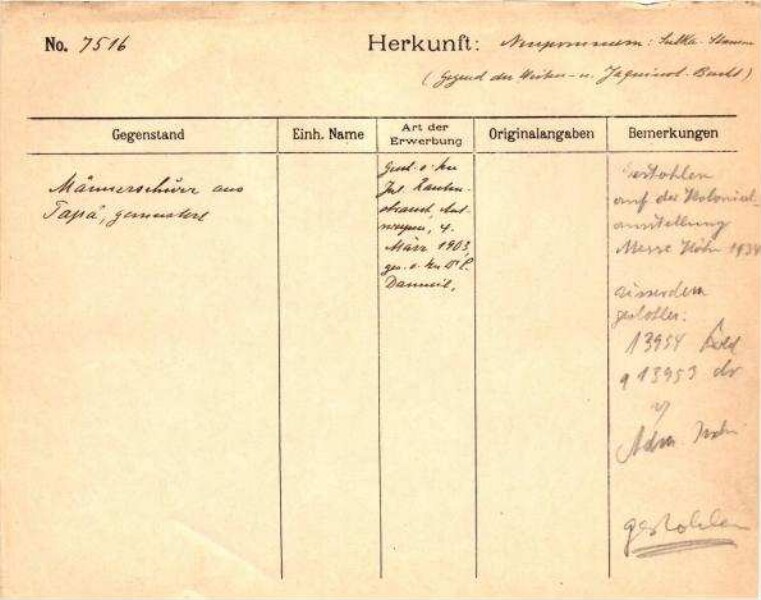 No. 7516
Herkunft: Neupommern: Sulka-Stamm
(Gegend der Weiten- u. Jaquinot-Bucht)
Gegenstand
Einh. Name
Art der
Erwerbung
Originalangaben
Bemerkungen
Männerschurz aus
Tapa, gemustert
Gesch. v.
Jul. Rauten-
strauch, Ant-
werpen, 4.
März 1903,
ges. v.
gestohlen
auf der Kolonial-
ausstellung
Messe Köln 1934
ausserdem
gestohlen:
13954
13953
gestohlen